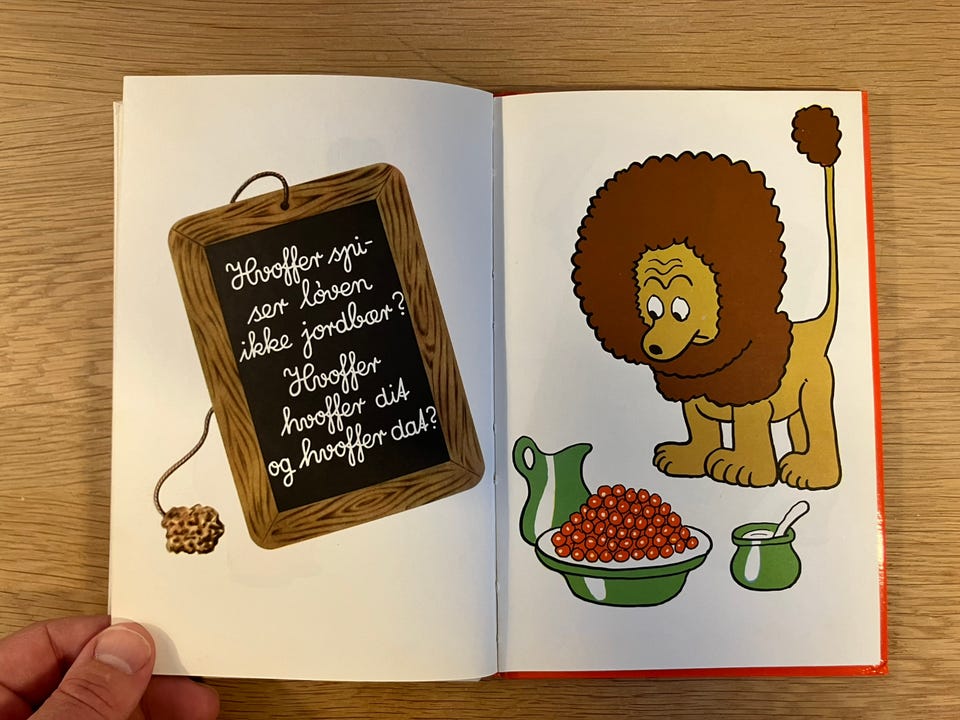 Hvoffer spi-
ser løven
ikke jordbær?
Hvoffer
hvoffer dit
og hvoffer dat?